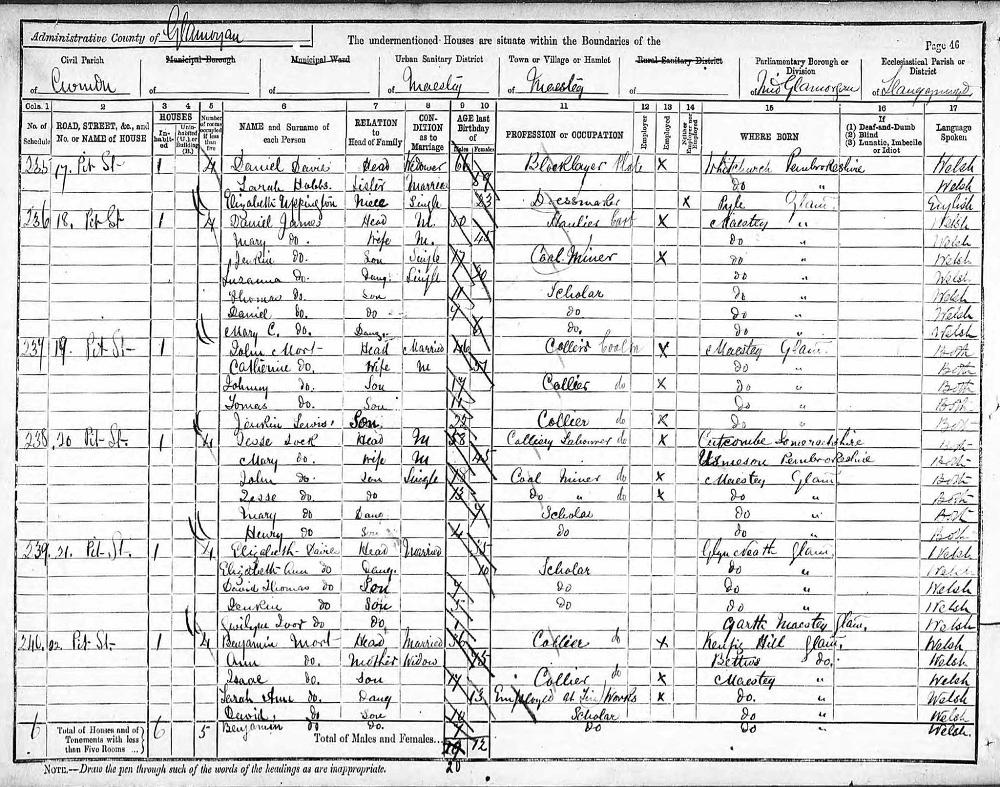 Administrative County of Glamorgan The undermentioned Houses are situate within the Boundaries of the Page 46
Civil Parish Municipal Borough Municipal Ward Urban Sanitary District Town or Village or Hamlet Rural Sanitary District Parliamentary Borough or Division Ecclesiastical Parish or District
of Cwmdu of of of Maesteg of Maesteg of of Mid Glamorgan of Llangynwyd
Cols. 1 2 3 4 5 6 7 8 9 10 11 12 13 14 15 16 17
No. of Schedule ROAD, STREET, &c., and No. or NAME of HOUSE HOUSES Inhabited Uninhabited (U.) or Building (B.) Number of rooms occupied if less than five NAME and Surname of each Person RELATION to Head of Family CONDITION as to Marriage AGE last Birthday of Males Females PROFESSION or OCCUPATION Employer Employed Neither Employer nor Employed WHERE BORN If (1) Deaf-and-Dumb (2) Blind (3) Lunatic, Imbecile or Idiot Language Spoken
235 17. Pit St 1 4 Daniel Davies Head Widower 66 x Whitchurch Pembrokeshire Welsh
Sarah Hobbs. Sister Married 59 do " Welsh
Elizabeth Uppington Niece Single 23 Dressmaker x Pyle Glam. English
236 18. Pit St 1 4 Daniel James Head M. Haulier x Maesteg " Welsh
Mary do. Wife M. 45 do " Welsh
Jenkin do. Son Single 17 Coal Miner x do " Welsh
Susanna do. Daug. Single 20 do " Welsh
Thomas do. Son 11 Scholar do " Welsh
Daniel do. do 9 do do " Welsh
Mary C. do. Daug. do. do " Welsh
237 19. Pit St 1 John Mort Head Married 46 x Maesteg Glam. Both
Catherine do. Wife M do " Both
Johnny do. Son Collier do x do " Both
Tomas do. Son do " Both
Jenkin Lewis. Son. 22 Collier do x do " Both
238 20 Pit St. 1 4 Jesse Lock Head M 58 Colliery Labourer do x Cutcombe Somersetshire Both
Mary do. Wife M 45 Pembrokeshire Both
John do. Son Single 18 Coal Miner do x Maesteg Glam. Both
Jesse do. do 13 do " do x do " Both
Mary do Daug 9 Scholar do " Both
Henry do Son 4 do do " Both
239. 21. Pit St. 1 4 Elizabeth Davies Head Married 35 Glyn Neath Glam. Welsh
Elizabeth Ann do Daug. 10 Scholar do " Welsh
David Thomas do Son 7 do do " Welsh
Jenkin do Son 5 do do " Welsh
Gwilym Ivor do Do. 1 Garth Maesteg Glam. Welsh
240. 22. Pit St 1 4 Benjamin Mort Head Married 36 Collier do x Kenfig Hill Glam. Welsh
Ann do. Mother Widow 75 Bettws do. Welsh
Isaac do. Son 17 Collier do x Maesteg " Welsh
Sarah Ann do. Daug 13 Employed at Tin Works x do. " Welsh
David. do Son 10 Scholar do " Welsh
Benjamin do do. 7 do do " Welsh.
6 Total of Houses and of Tenements with less than Five Rooms ... 6 5 Total of Males and Females... 19 12
20
NOTE.—Draw the pen through such of the words of the headings as are inappropriate.